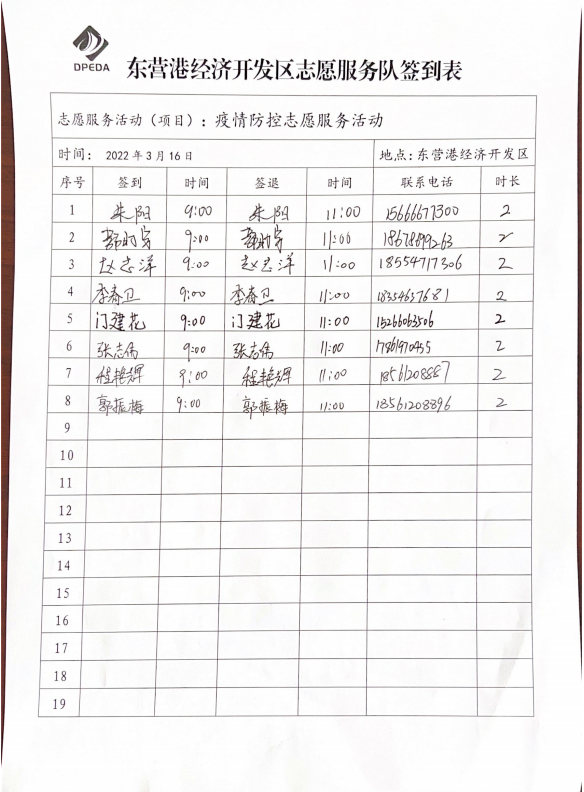 DPEDA
东营港经济开发区志愿服务队签到表
志愿服务活动（项目）：疫情防控志愿服务活动
时间： 2022年3月16日 地点：东营港经济开发区
序号 签到 时间 签退 时间 联系电话 时长
1 朱阳 9:00 朱阳 11:00 15666671300 2
2 9:00 11:00 2
3 赵志洋 9:00 赵志洋 11:00 18554717306 2
4 李春卫 9:00 李春卫 11:00 18354657681 2
5 门建花 9:00 门建花 11:00 15266063506 2
6 张志伟 9:00 张志伟 11:00 2
7 程艳辉 9:00 程艳辉 11:00 2
8 郭振梅 9:00 郭振梅 11:00 18561208896 2
9
10
11
12
13
14
15
16
17
18
19